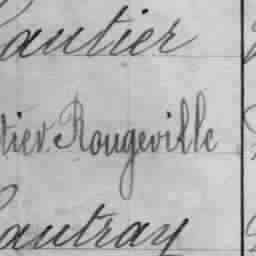 Gautier
tier Rougeville
Lautray